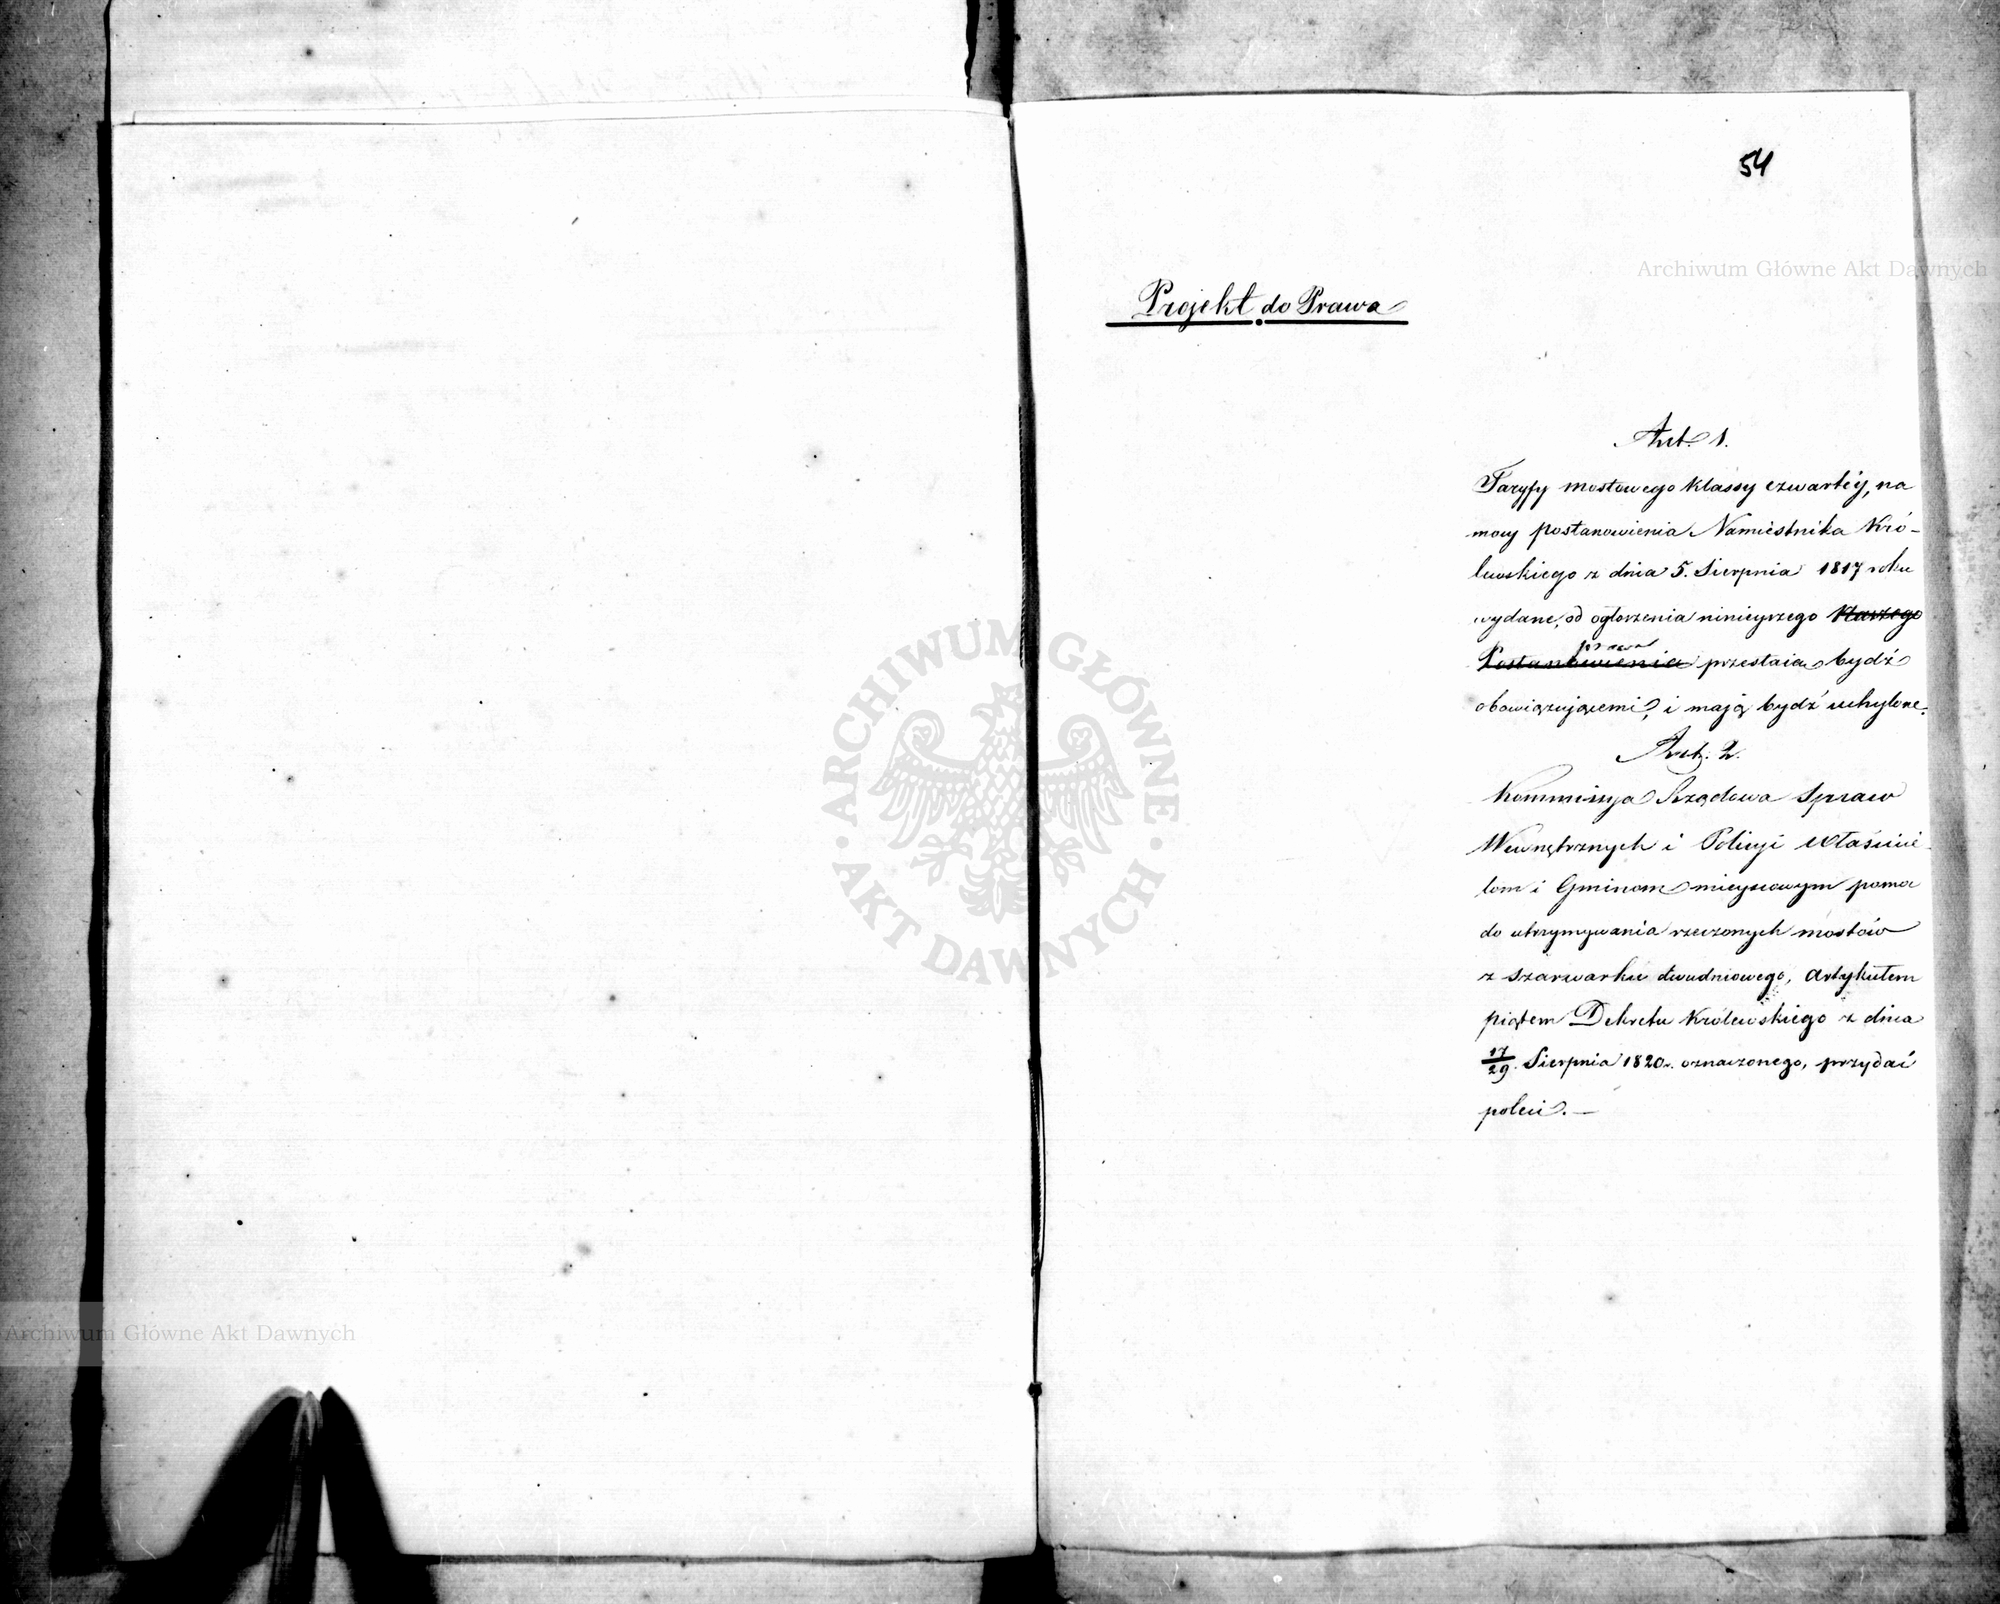 54
Archiwum Główne Akt Dawnych
Projekt do Prawa
Art. 1.
Taryfy mostowego klassy czwartéy, na
mocy postanowienia Namiéstnika Kró-
lewskiego z dnia 5. Sierpnia 1817 roku
wydane, od ogłoszenia ninieyszego Naszego
prawa
Postanowienia przestaią bydź
obowiązującemi, i mają bydź uchylone.
Art. 2.
Kommissya Rządowa Spraw
Wewnętrznych i Policyi właścicie
lom i Gminom mieyscowym pomoc
do utrzymywania rzeczonych mostów
z szarwarku dwudniowego, Artykułem
piątem Dekretu Królewskiego z dnia
17/29. Sierpnia 1820 r. oznaczonego, przydać
poleci. —
ARCHIWUM GŁÓWNE
AKT DAWNYCH
Archiwum Główne Akt Dawnych